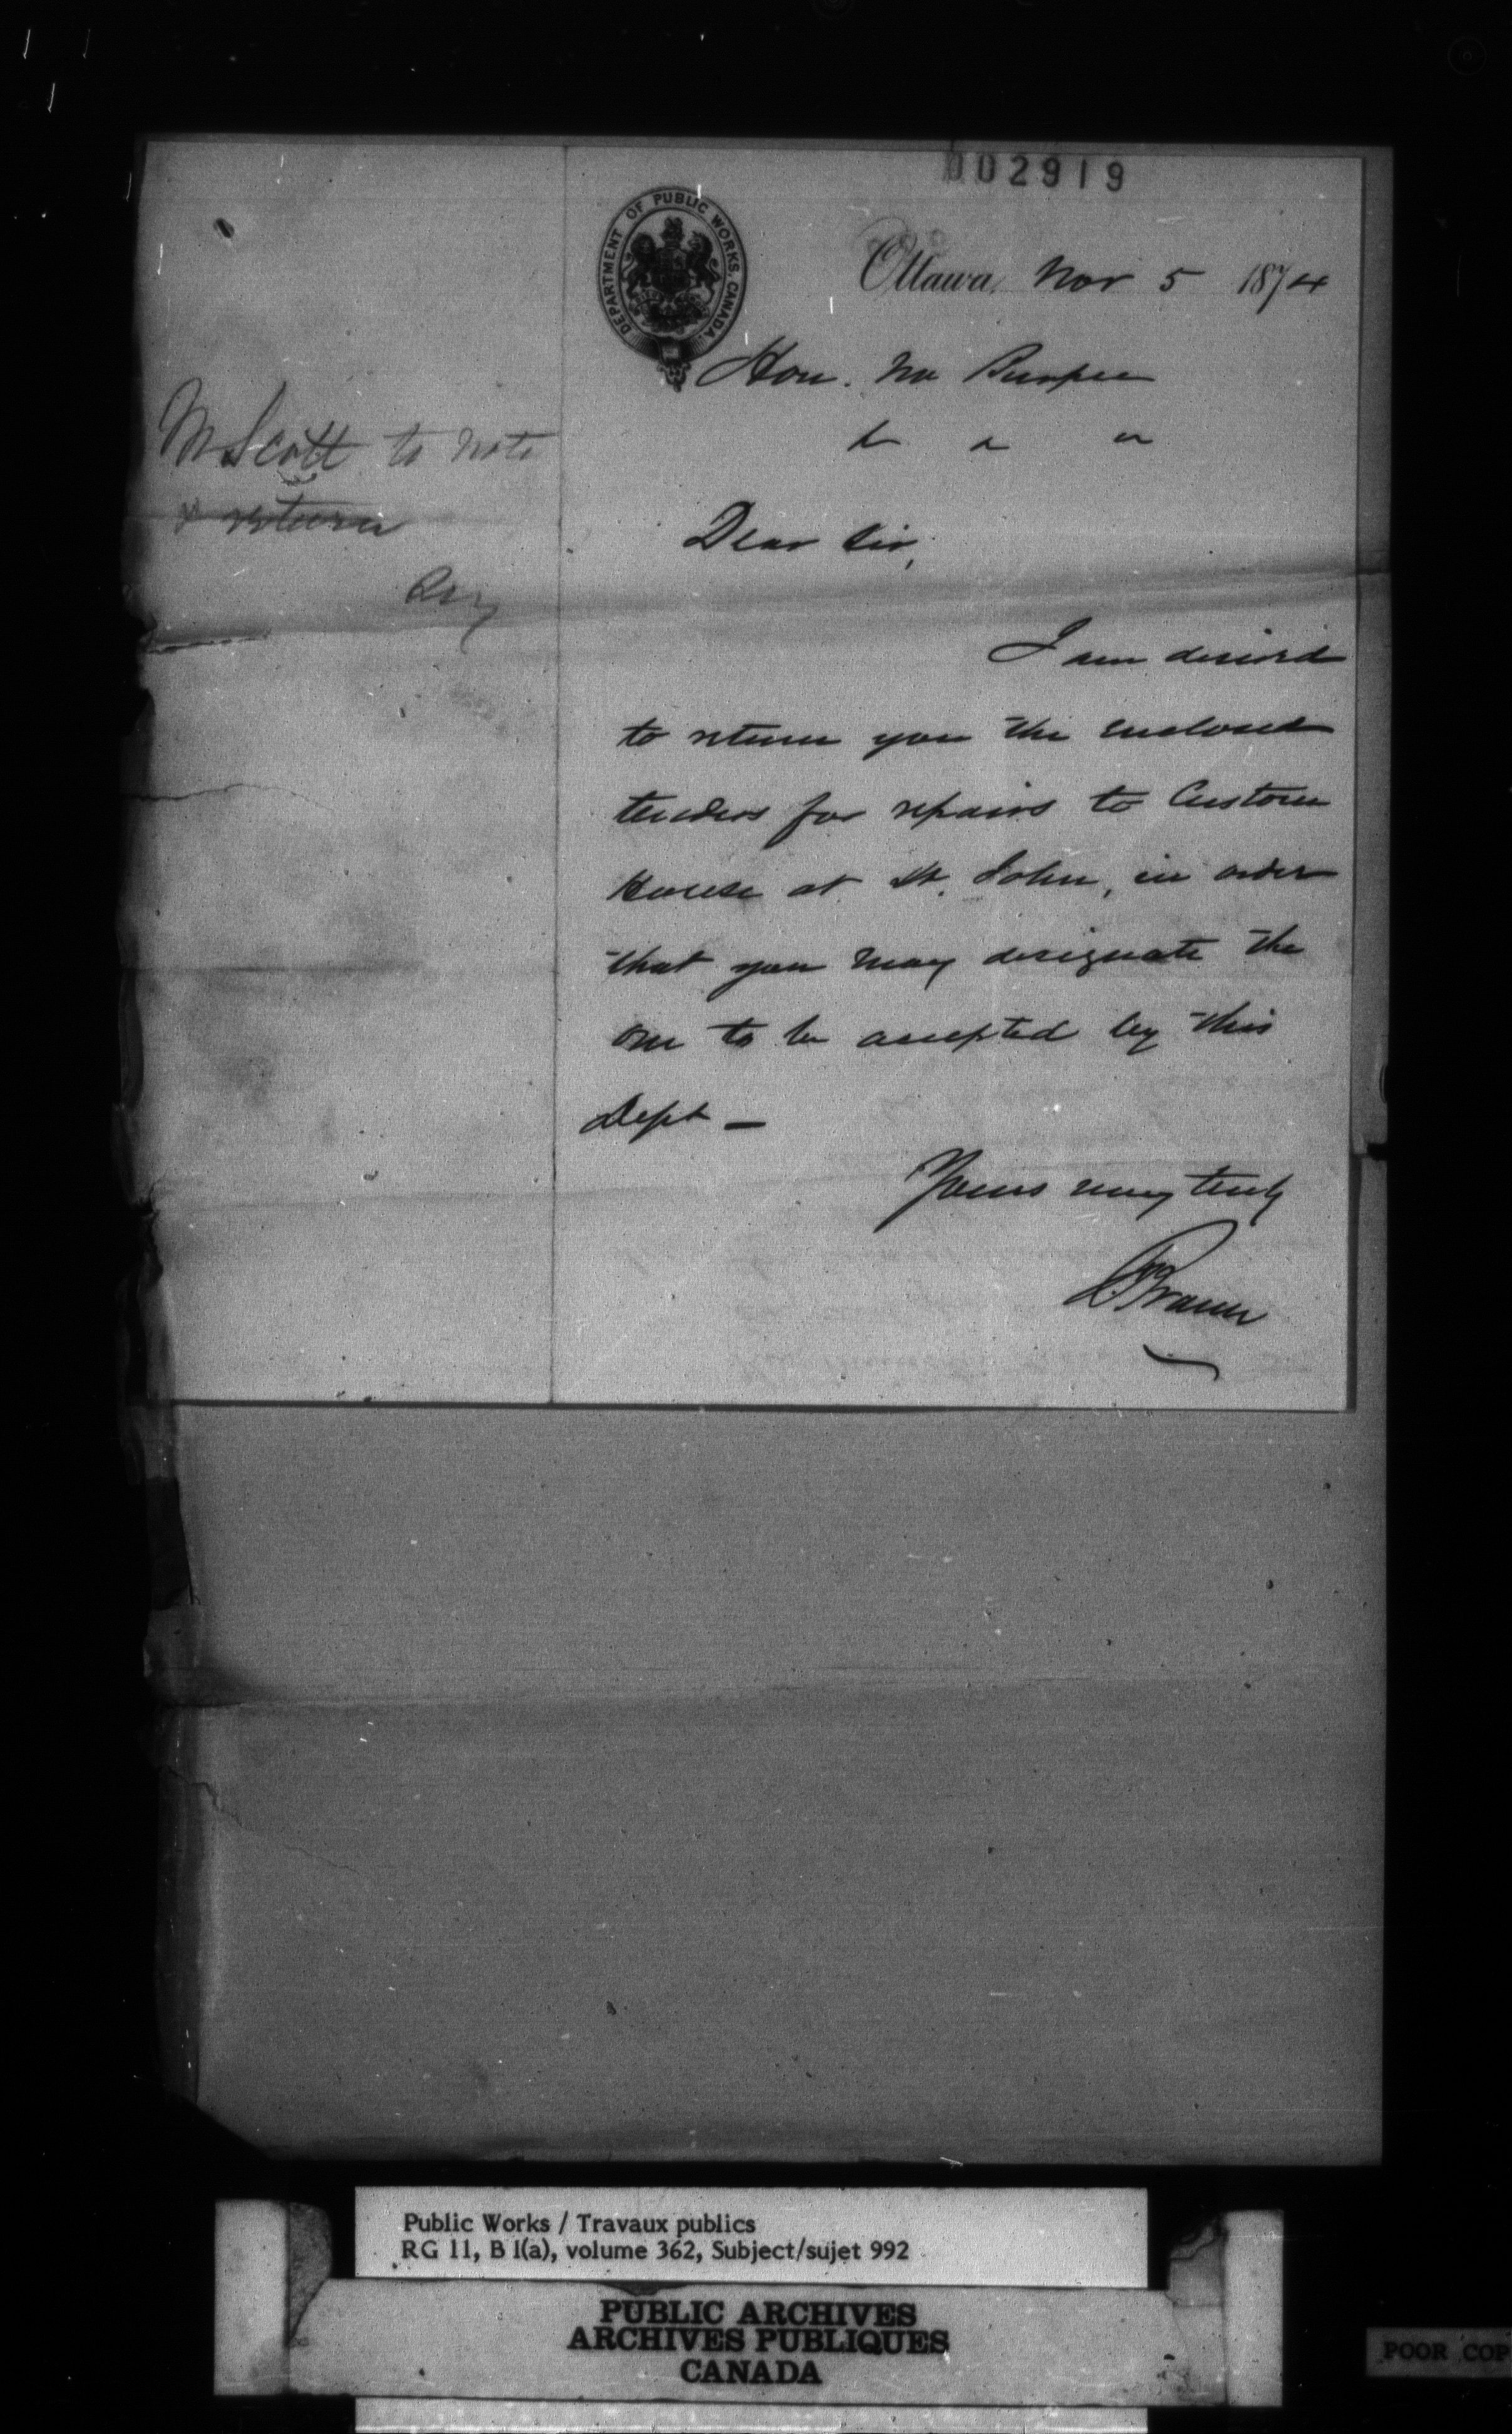 002919
DEPARTMENT OF PUBLIC WORKS, CANADA.
Ottawa, Nov 5 1874
Hon. Mr Burpee
Dear Sir,
I am desired
to return you the enclosed
tenders for repairs to Custom
House at St. John, in order
that you may designate the
one to be accepted by this
Dept —
Yours very truly
Braun
Mr Scott to note
& return
Public Works / Travaux publics
RG 11, B 1(a), volume 362, Subject/sujet 992
PUBLIC ARCHIVES
ARCHIVES PUBLIQUES
CANADA
POOR COP